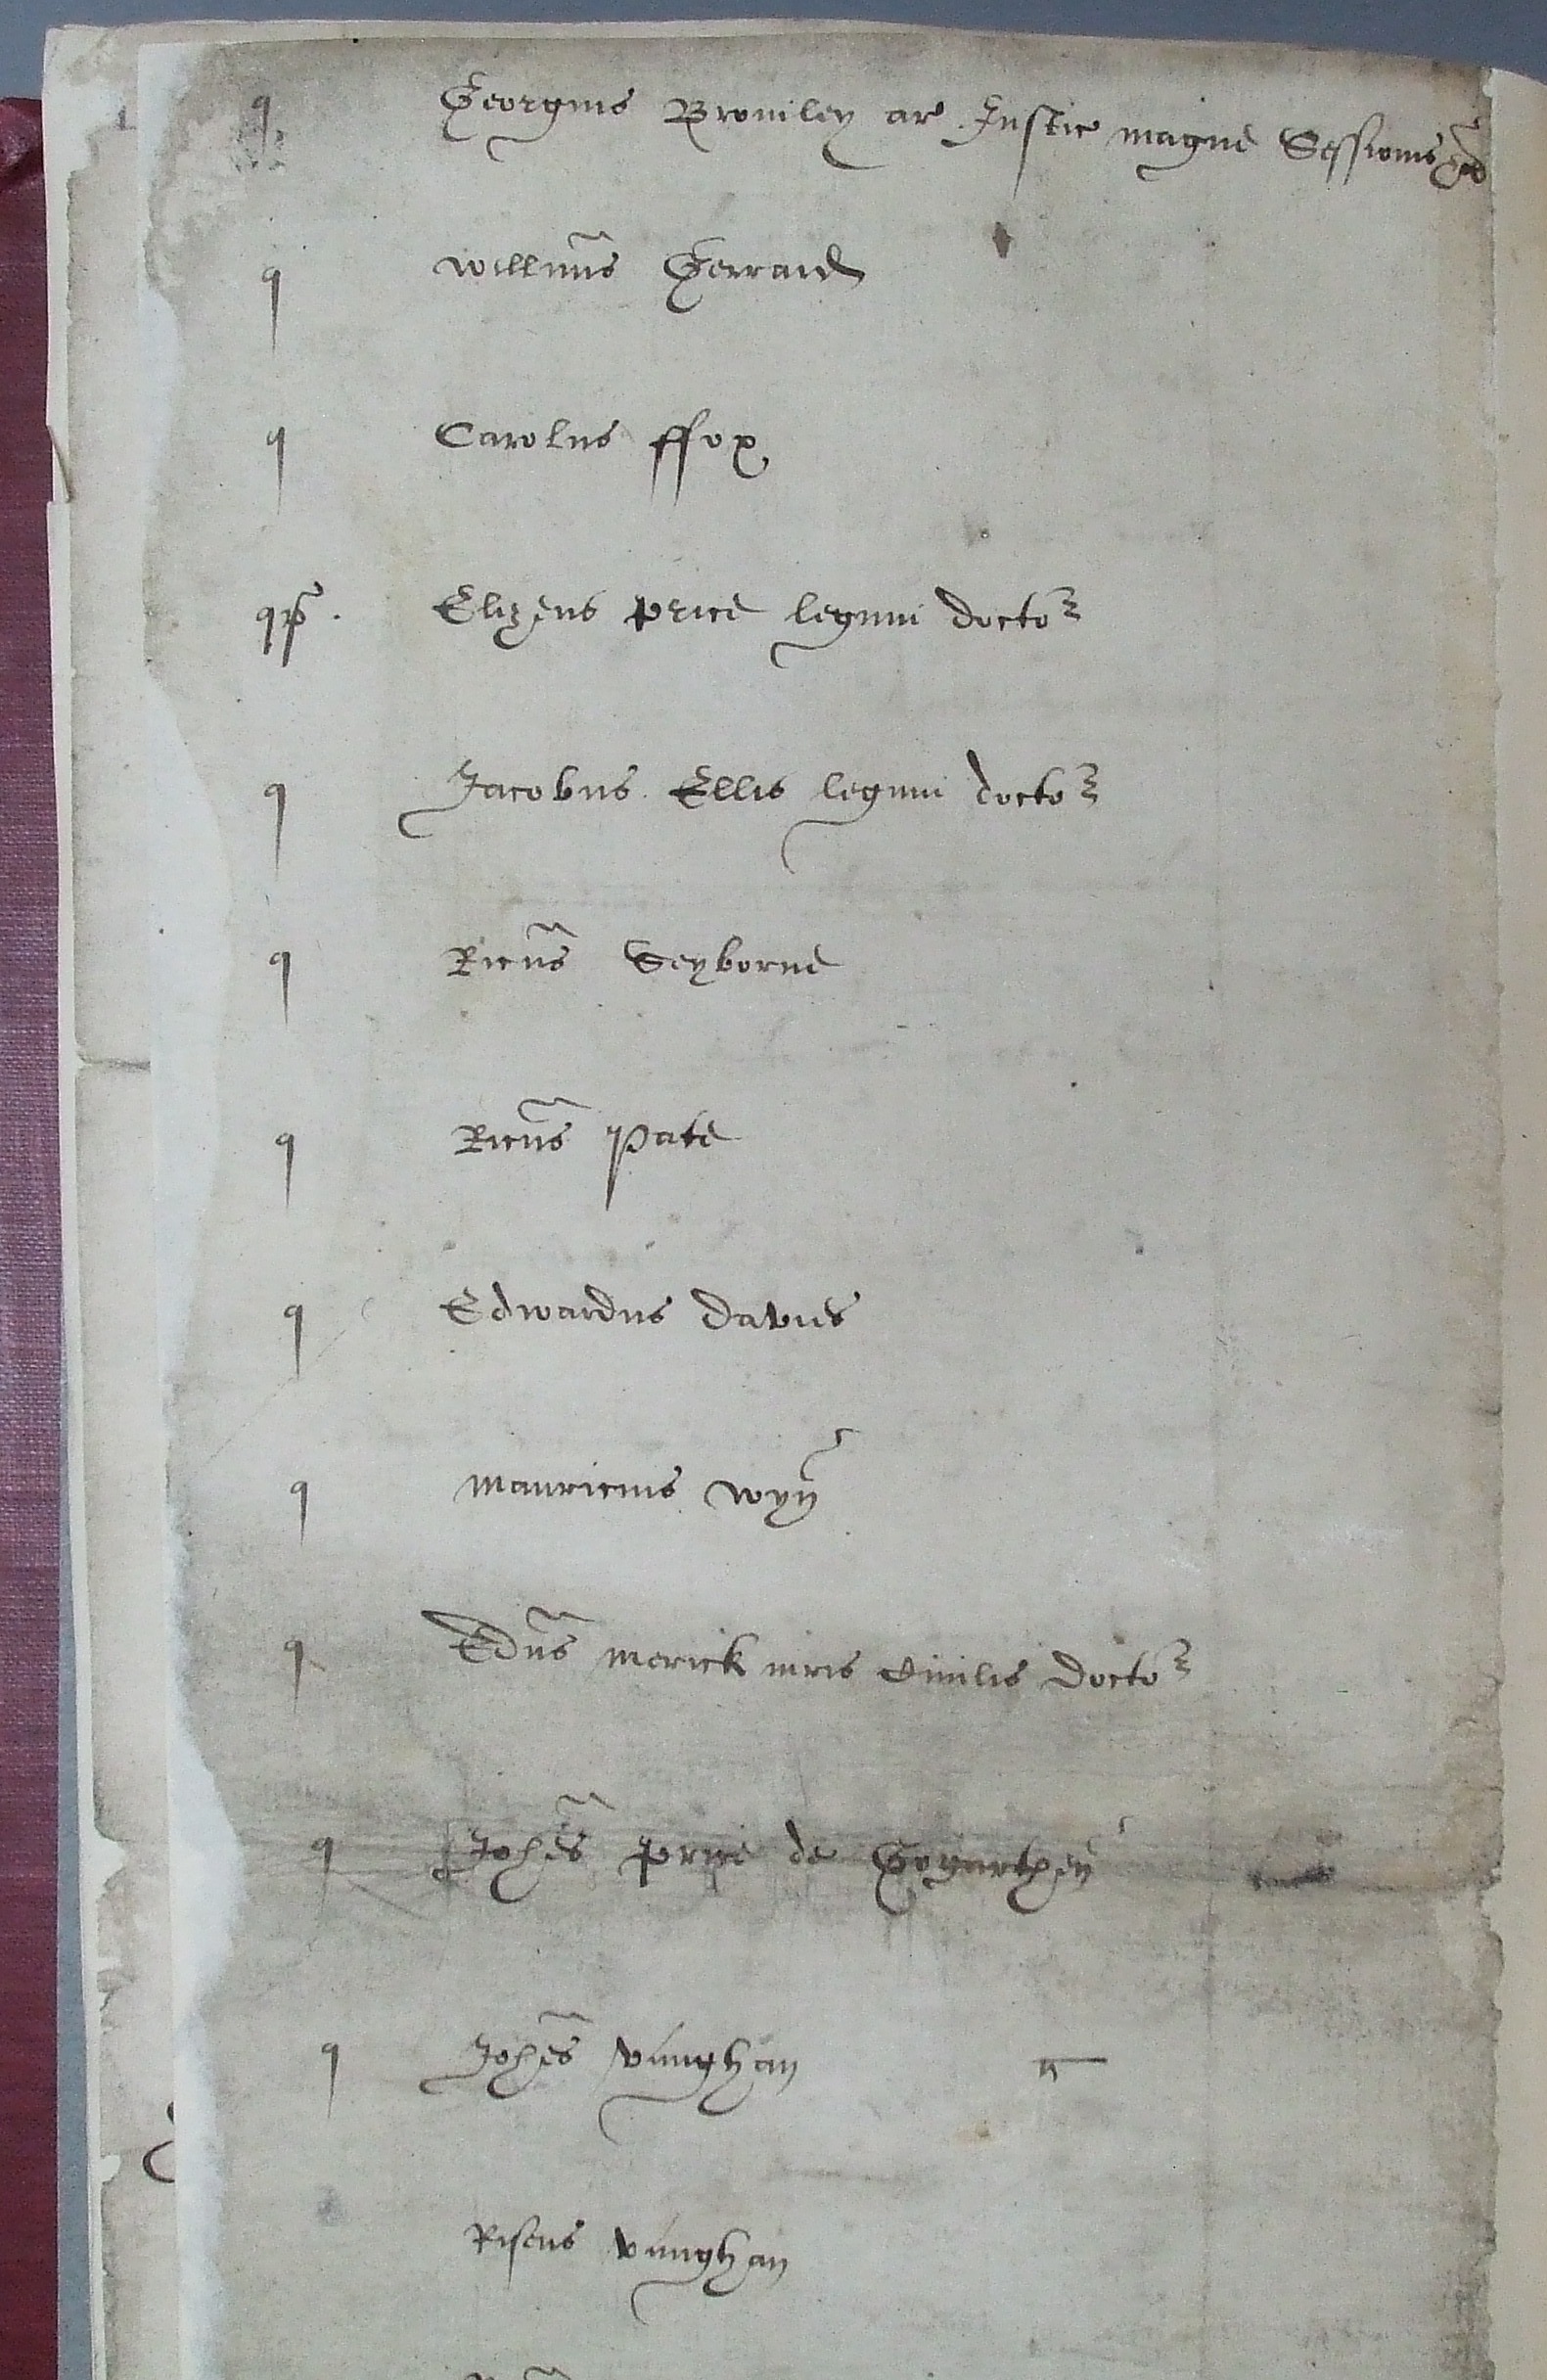 q Georgius Bromley ar Justic magne Sessionis
q Willmus Gerrard
q Carolus ffox
qp Elizeus Price legum doctor
q Jacobus Ellis legum doctor
q Ricus Seyborne
q Ricus Pate
q Edwardus Davies
q Mauricius Wyn
q Edus Merick iuris Civilis doctor
q Johes Price de Gogarthen
q Johes Vaughan n
Riseus Vaughan